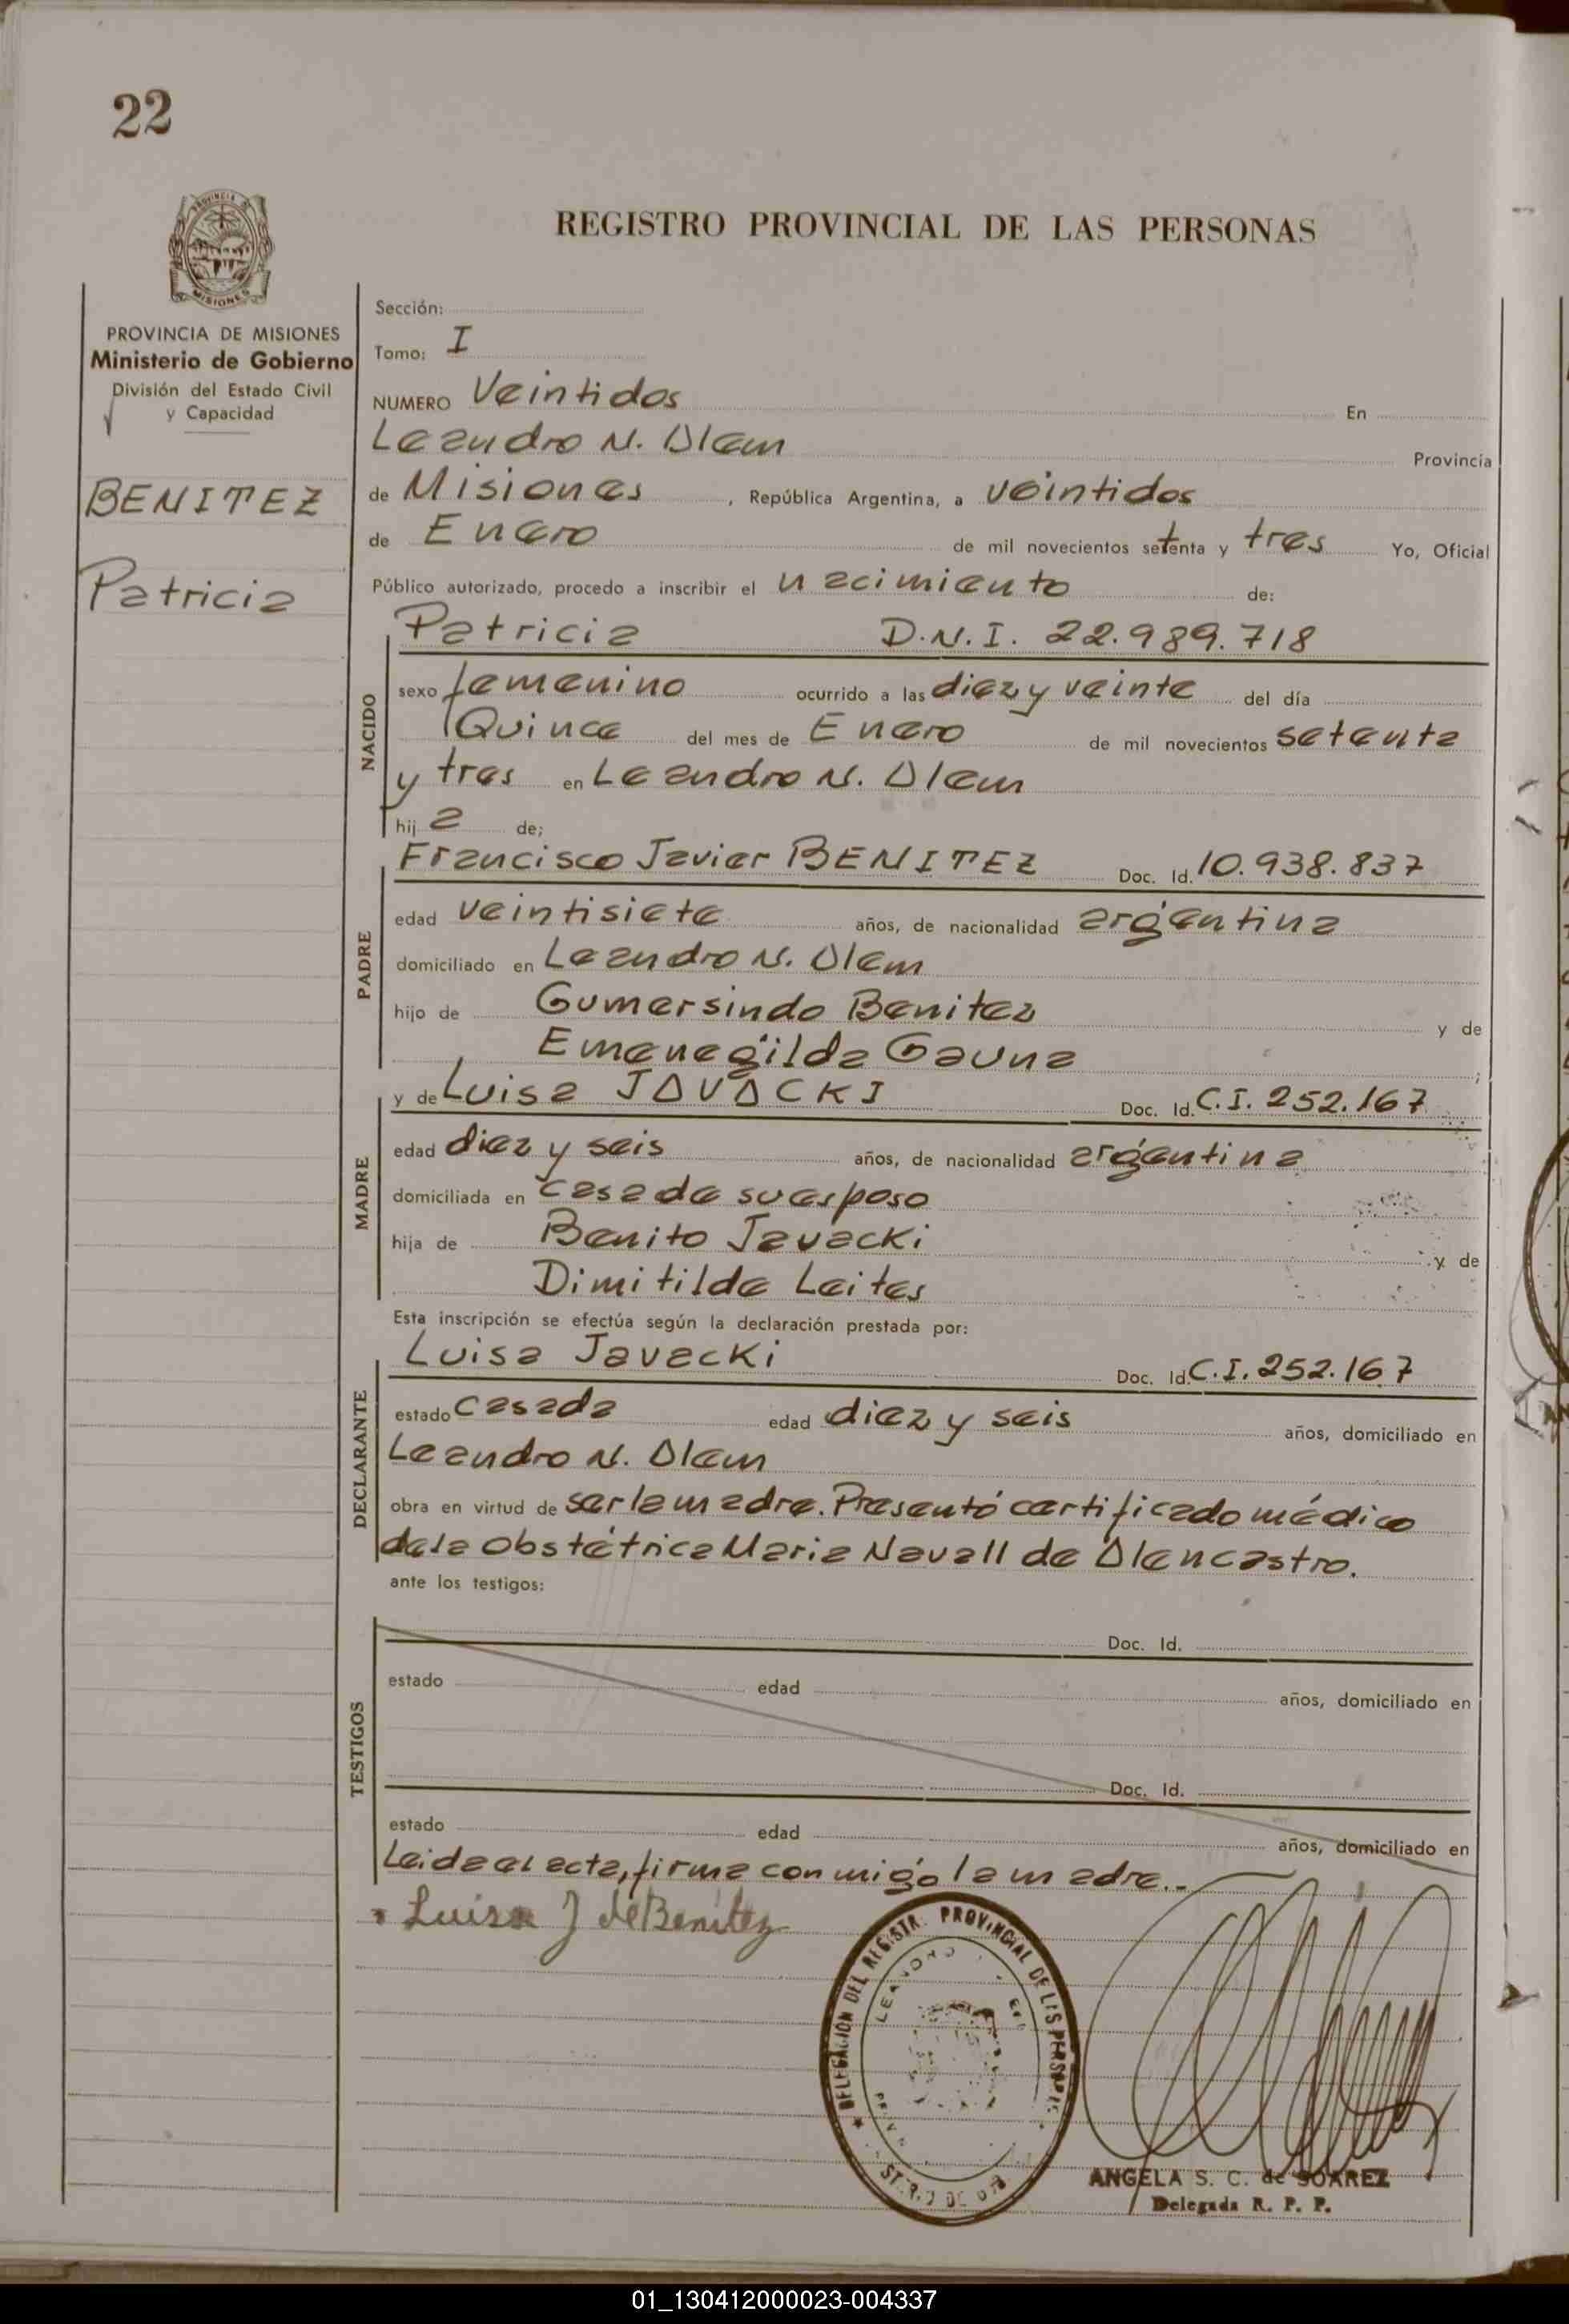 22
PROVINCIA DE MISIONES
REGISTRO PROVINCIAL DE LAS PERSONAS
PROVINCIA DE MISIONES
Ministerio de Gobierno
División del Estado Civil
y Capacidad
BENITEZ
Patricia
Sección:
Tomo: I
NUMERO Veintidos En
Leandro N. Alem Provincia
de Misiones, República Argentina, a veintidos
de Enero de mil novecientos setenta y tres Yo, Oficial
Público autorizado, procedo a inscribir el nacimiento de:
Patricia D.N.I. 22.989.718
NACIDO
sexo femenino ocurrido a las diez y veinte del día
Quince del mes de Enero de mil novecientos setenta
y tres en Leandro N. Alem
hij a de;
Francisco Javier BENITEZ Doc. Id. 10.938.837
PADRE
edad veintisiete años, de nacionalidad argentina
domiciliado en Leandro N. Alem
hijo de Gumersindo Benitez y de
Emenegilda Gauna ;
y de Luisa JAVACKI Doc. Id. C.I. 252.167
MADRE
edad diez y seis años, de nacionalidad argentina
domiciliada en casa de su esposo
hija de Benito Javacki y de
Dimitilda Leites
Esta inscripción se efectúa según la declaración prestada por:
Luisa Javacki Doc. Id. C.I. 252.167
DECLARANTE
estado casada edad diez y seis años, domiciliado en
Leandro N. Alem
obra en virtud de ser la madre. Presentó certificado médico
de la obstétrica Maria Navall de Alencastro.
ante los testigos:
TESTIGOS
Doc. Id.
estado edad años, domiciliado en
Doc. Id.
estado edad años, domiciliado en
Leida el acta, firma conmigo la madre..-
Luisa J de Benitez
DELEGACION DEL REGISTR. PROVINCIAL DE LAS PERSONAS
LEANDRO
ANGELA S. C. de SUAREZ
Delegada R. P. P.
01_130412000023-004337